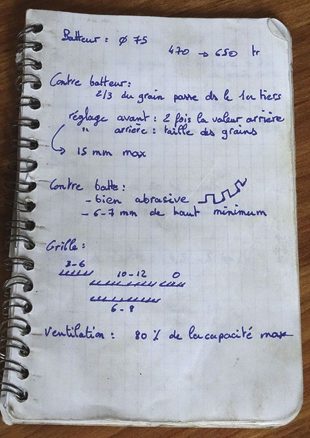 Batteur : ø 75
470 → 650 tr
Contre batteur :
2/3 du grain passe ds le 1er tiers
réglage avant : 2 fois la valeur arrière
" arrière : taille des grains
→ 15 mm max
Contre batte :
- bien abrasive
- 6-7 mm de haut minimum
Grille :
3-6
10-12 0
6-8
Ventilation : 80 % de la capacité max